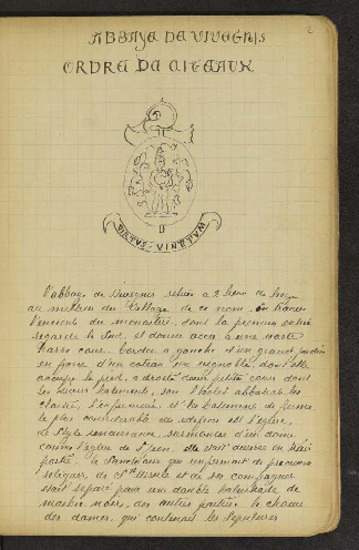 2
ABBAYE DE VIVEGNIS
ORDRE DE CITEAUX
L'abbaye de Vivegnis située à 2 lieues de Liège
au milieu du village de ce nom.
du monastère, dont la
regarde le Sud, et donne accès à une vaste
basse cour bordée à gauche d'un grand jardin
en forme d'un coteau en vignoble, dont elle
occupe le pied, à droite d'une petite cour dont
les bâtiments, sont l'hôtel abbatial, les
cloîtres, l'infirmerie, et les bâtiments de ferme
le plus considérable des édifices est l'église,
de style renaissance, surmontée d'un dôme
comme l'église de St Jean. elle était divisée en trois
parties. le sanctuaire qui renfermait de précieuses
reliques, de Ste Ursule et de ses compagnes
était séparé par une double balustrade de
marbre noir, des autres parties. le choeur
des dames, qui contenait les sépultures